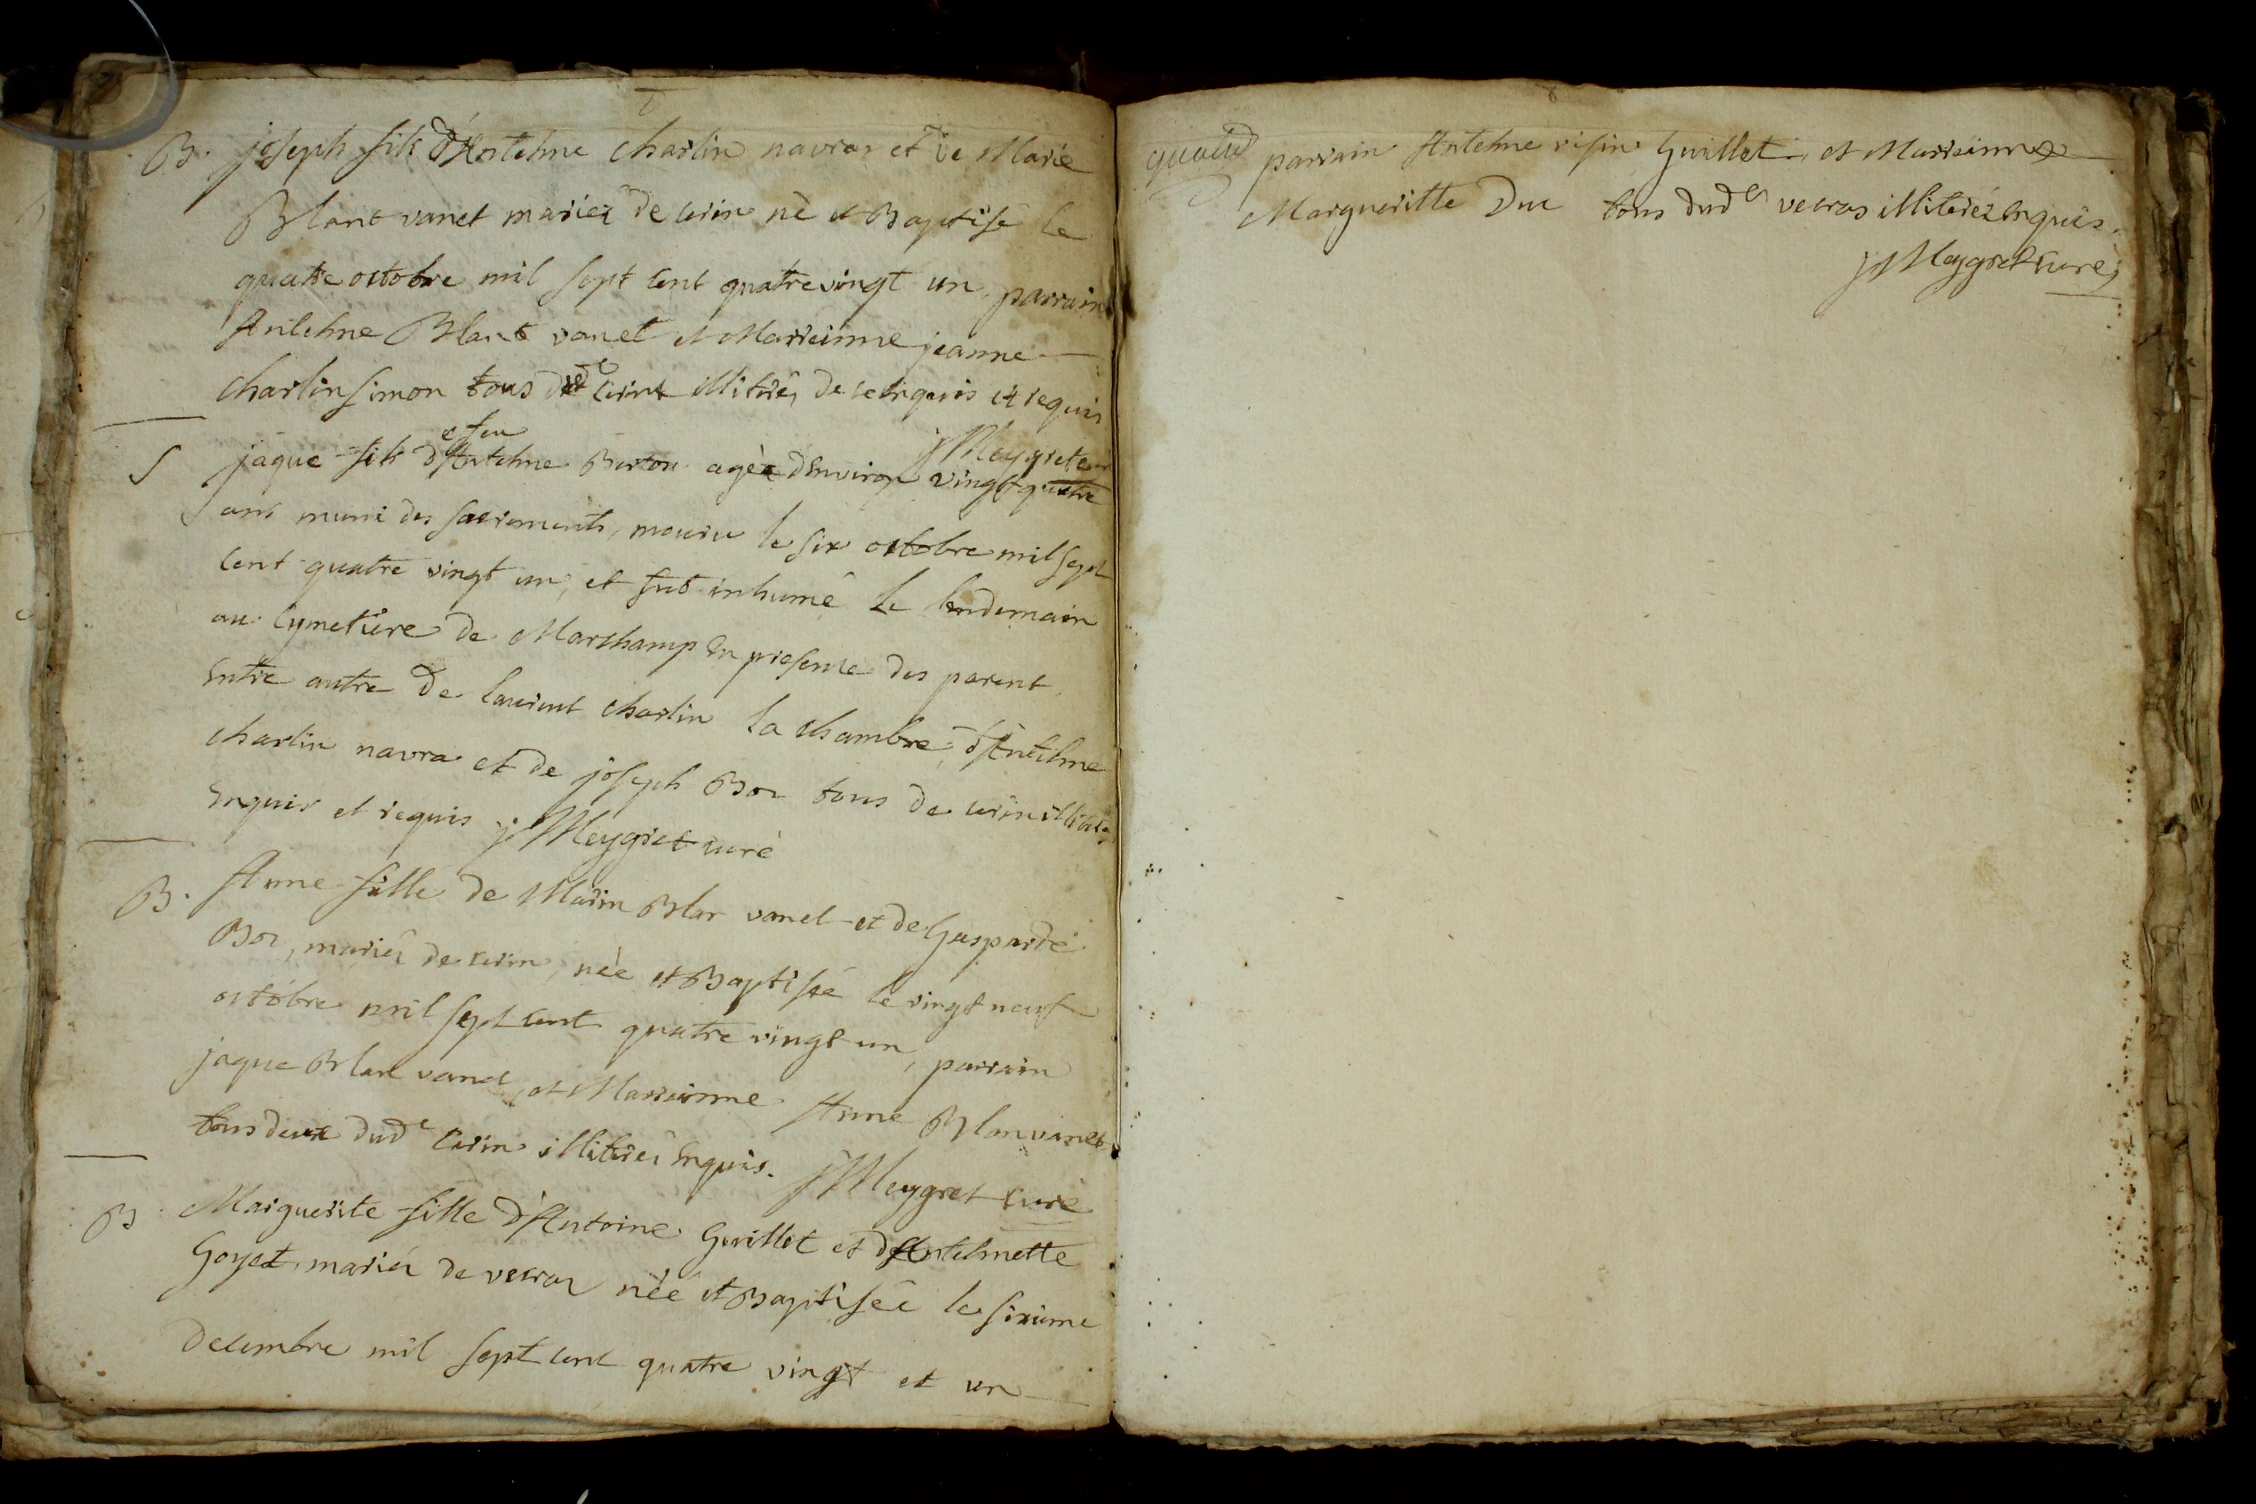 B. joseph fils d'Antelme charlin navraz et de Marie
Blanc vanet mariez de cerin né et Baptisé le
quatre octobre mil sept cent quatre vingt un, parrain
Antelme Blanc vanet et Marreinne jeanne
charlin simon tous dudt cerin illitérés de ce enquis et requis
j Meygret curé
S jaque fils de feu Antelme Berton agée d'environ vingt quatre
ans muni des sacrements, mouru le six octobre mil sept
cent quatre vingt un, et fut inhumé le lendemain
au cymetiere de Marchamp en presence des parent
entre autre de laurent charlin la chambre, d'Antelme
charlin navra et de joseph Boz tous de cerin illiterés
enquis et requis j Meygret curé
B. Anne fille de Marin Blan vanet et de Gasparde
Boz, mariéz de cerin, née et Baptisée le vingt neuf
octobre mil sept cent quatre vingt un, parrain
jaque Blanc vanet, et Marreinne Anne Blanvanet
tous deux dudt cerin illiteréz enquis. j Meygret curé
B. Marguerite fille d'Antoine Guillot et d'Antelmette
Goyet, mariéz de vecraz née et Baptisée le sixieme
decembre mil sept cent quatre vingt et un
parrain Antelme Guillot, et Marreinne
Margueritte Duc tous dudt vecras illiteréz enquis.
j Meygret curé